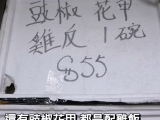 豉椒花甲
雞反1碗
$55
還有豉椒花甲 都是配雞飯